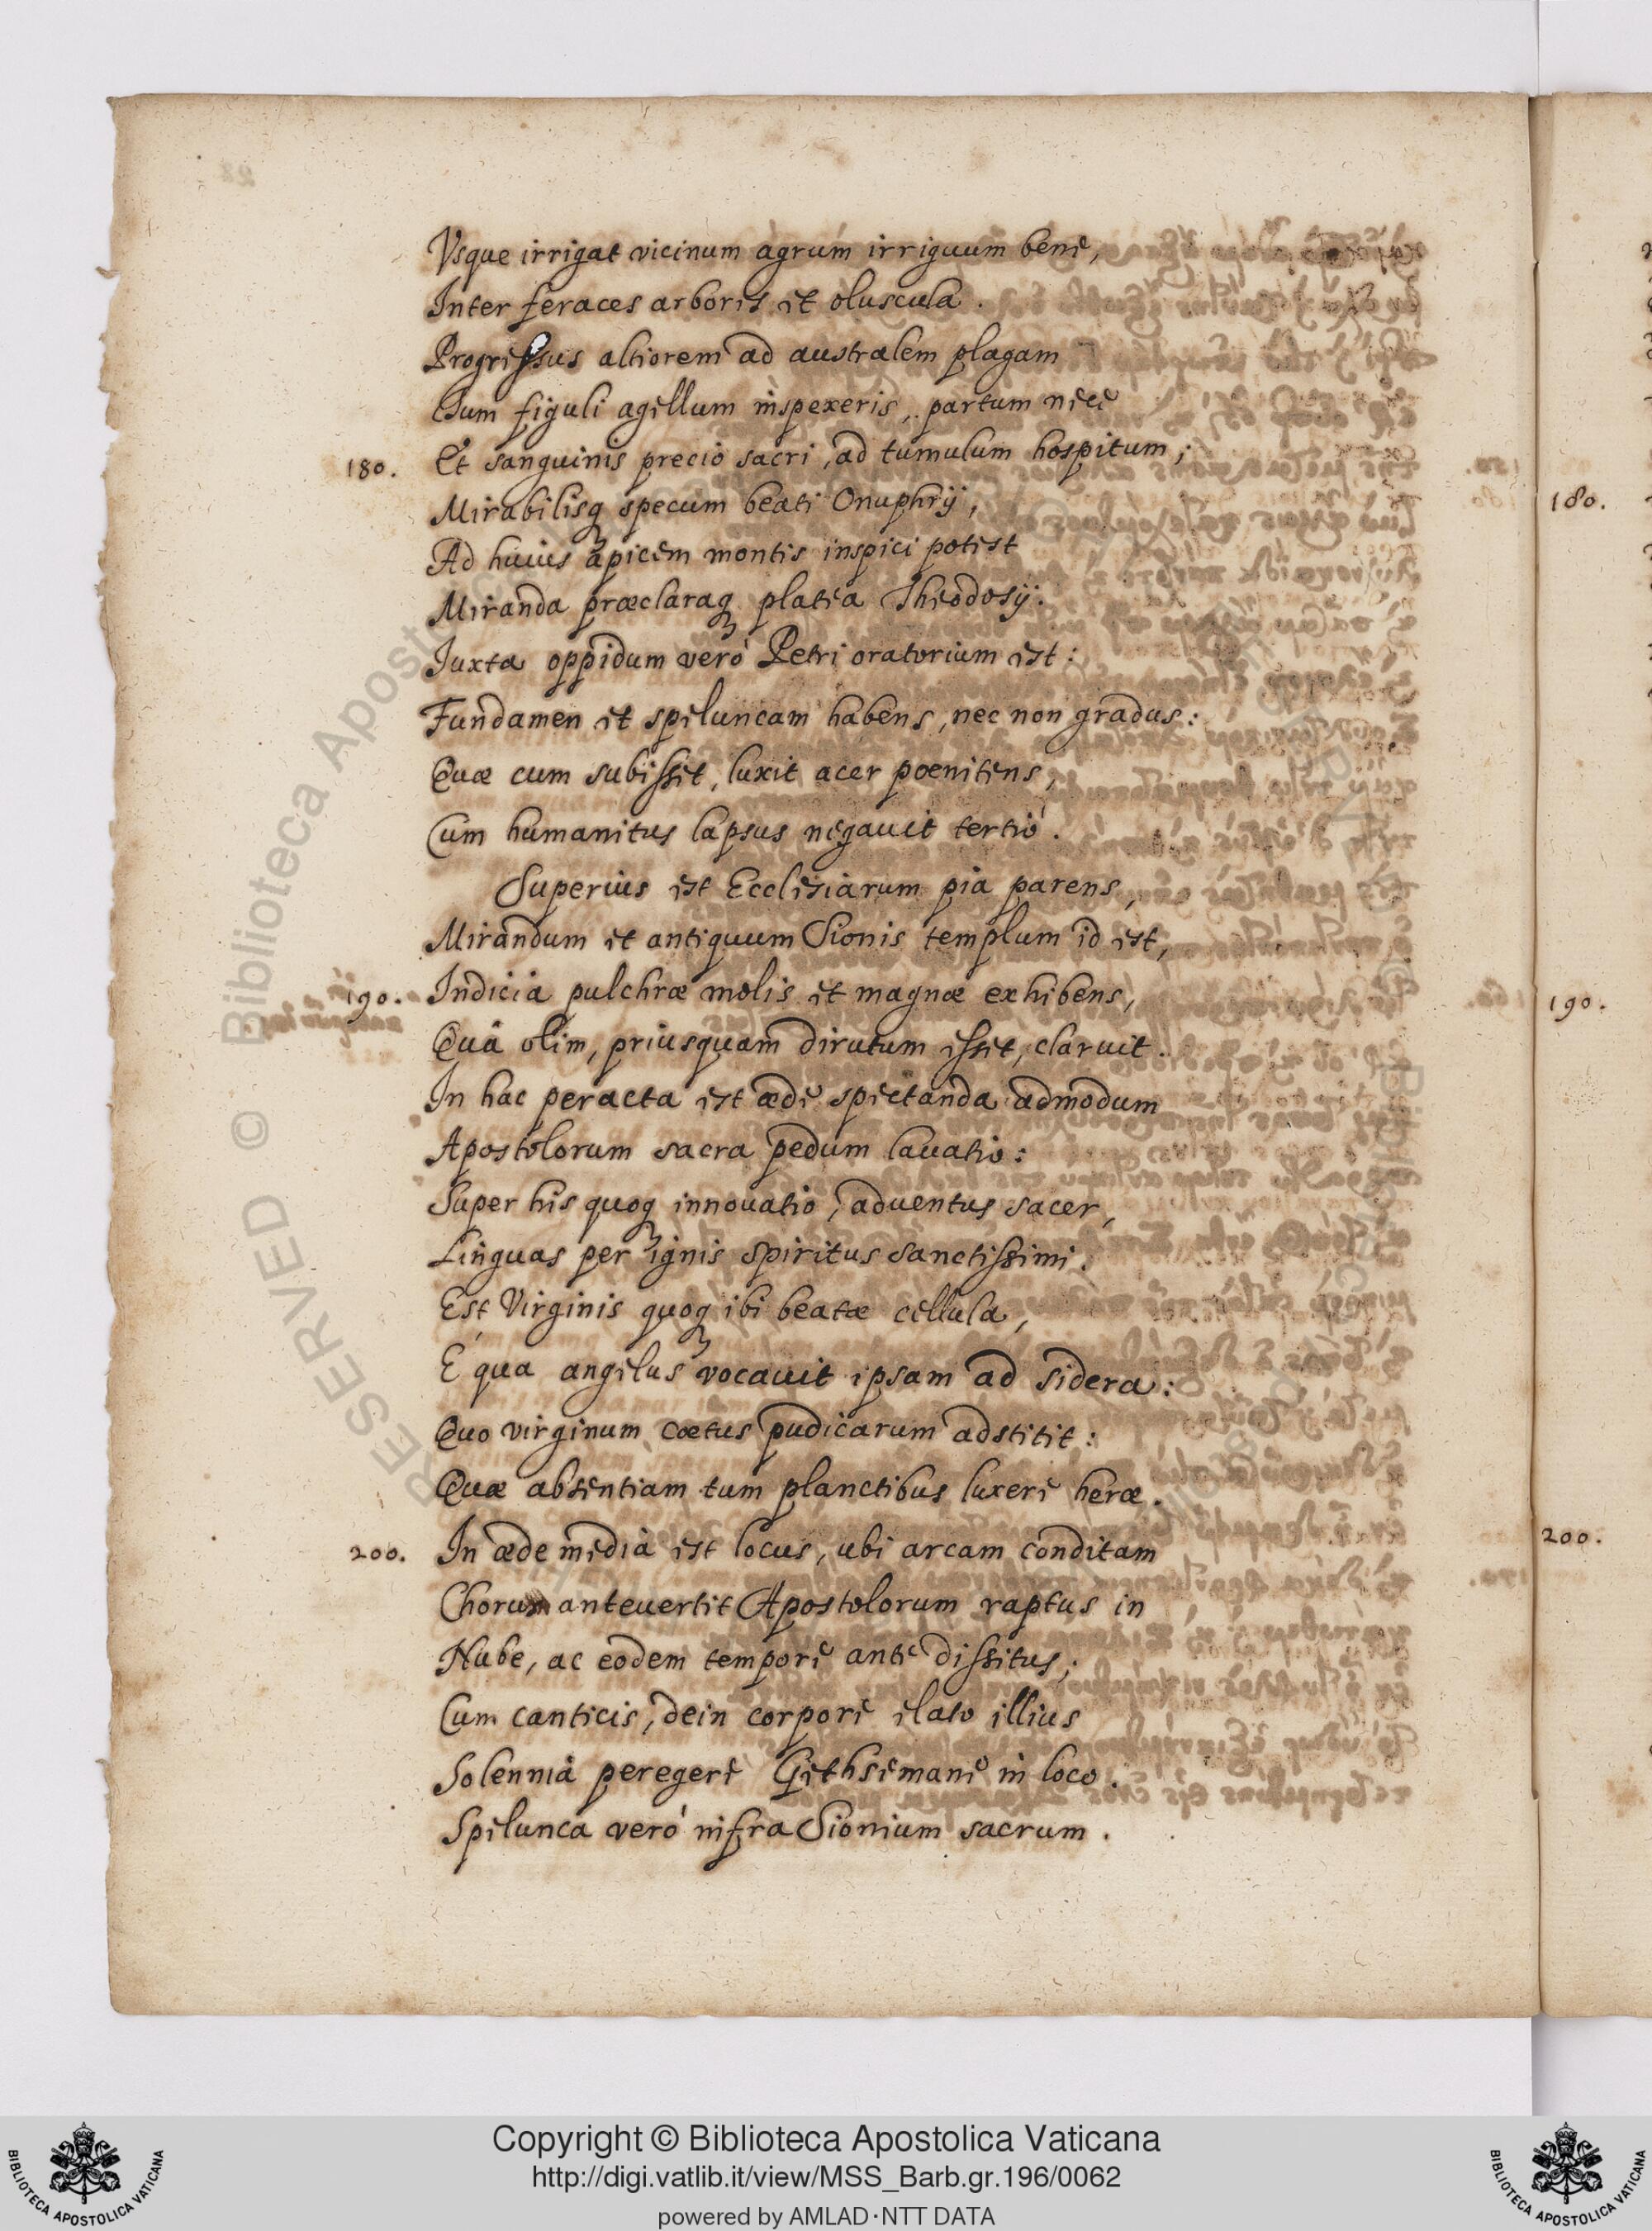 Vsque irrigat vicinum agrum irriguum bene,
Inter feraces arbores et oluscula.
Progressus altiorem ad australem plagam
Tum figuli agellum inspexeris, partum nece
180. Et sanguinis precio sacri, ad tumulum hospitum;
Mirabilisq specum beati Onuphrij,
Ad huius apicem montis inspici potest
Miranda præclaraq platea Theodosij.
Iuxta oppidum verò Petri oratorium est:
Fundamen et speluncam habens, nec non gradus:
Quæ cum subisset, luxit acer pœnitens,
Cum humanitus lapsus negauit tertiò.
Superius est Ecclesiarum pia parens,
Mirandum et antiquum Sionis templum id est,
190. Indicia pulchræ molis et magnæ exhibens,
Quâ olim, priusquam dirutum esset, claruit.
In hac peracta est æde spectanda admodum
Apostolorum sacra pedum lauatio:
Super his quoq innouatio, aduentus sacer,
Linguas per ignis spiritus sanctissimi.
Est Virginis quoq ibi beatæ cellula,
E qua angelus vocauit ipsam ad sidera:
Quo virginum cœtus pudicarum adstitit:
Quæ absentiam tum planctibus luxere heræ.
200. In æde mediâ est locus, ubi arcam conditam
Chorum anteuertit Apostolorum raptus in
Nube, ac eodem tempore ante dissitus;
Cum canticis, dein corpore elato illius
Solennia peregere Gethsemane in loco.
Spelunca verò infra Sionium sacrum.
180.
190.
200.
RESERVED © Biblioteca Apostolica
Copyright © Biblioteca Apostolica Vaticana
http://digi.vatlib.it/view/MSS_Barb.gr.196/0062
powered by AMLAD·NTT DATA
BIBLIOTECA APOSTOLICA VATICANA
BIBLIOTECA APOSTOLICA VATICANA